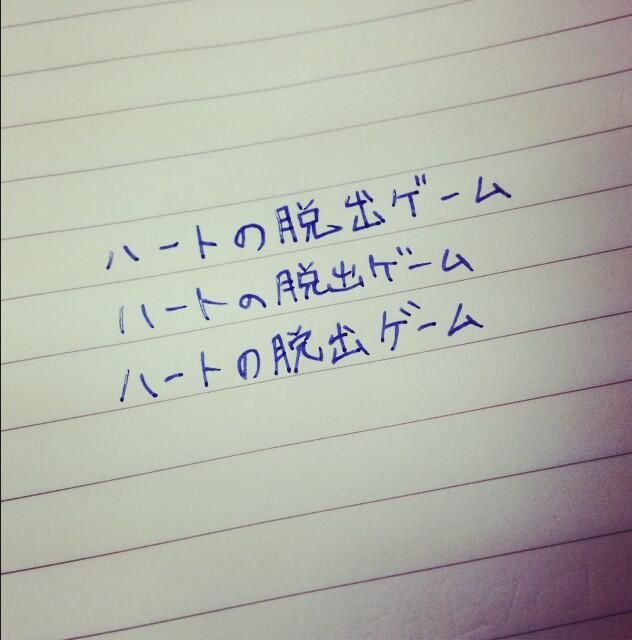 ハートの脱出ゲーム
ハートの脱出ゲーム
ハートの脱出ゲーム